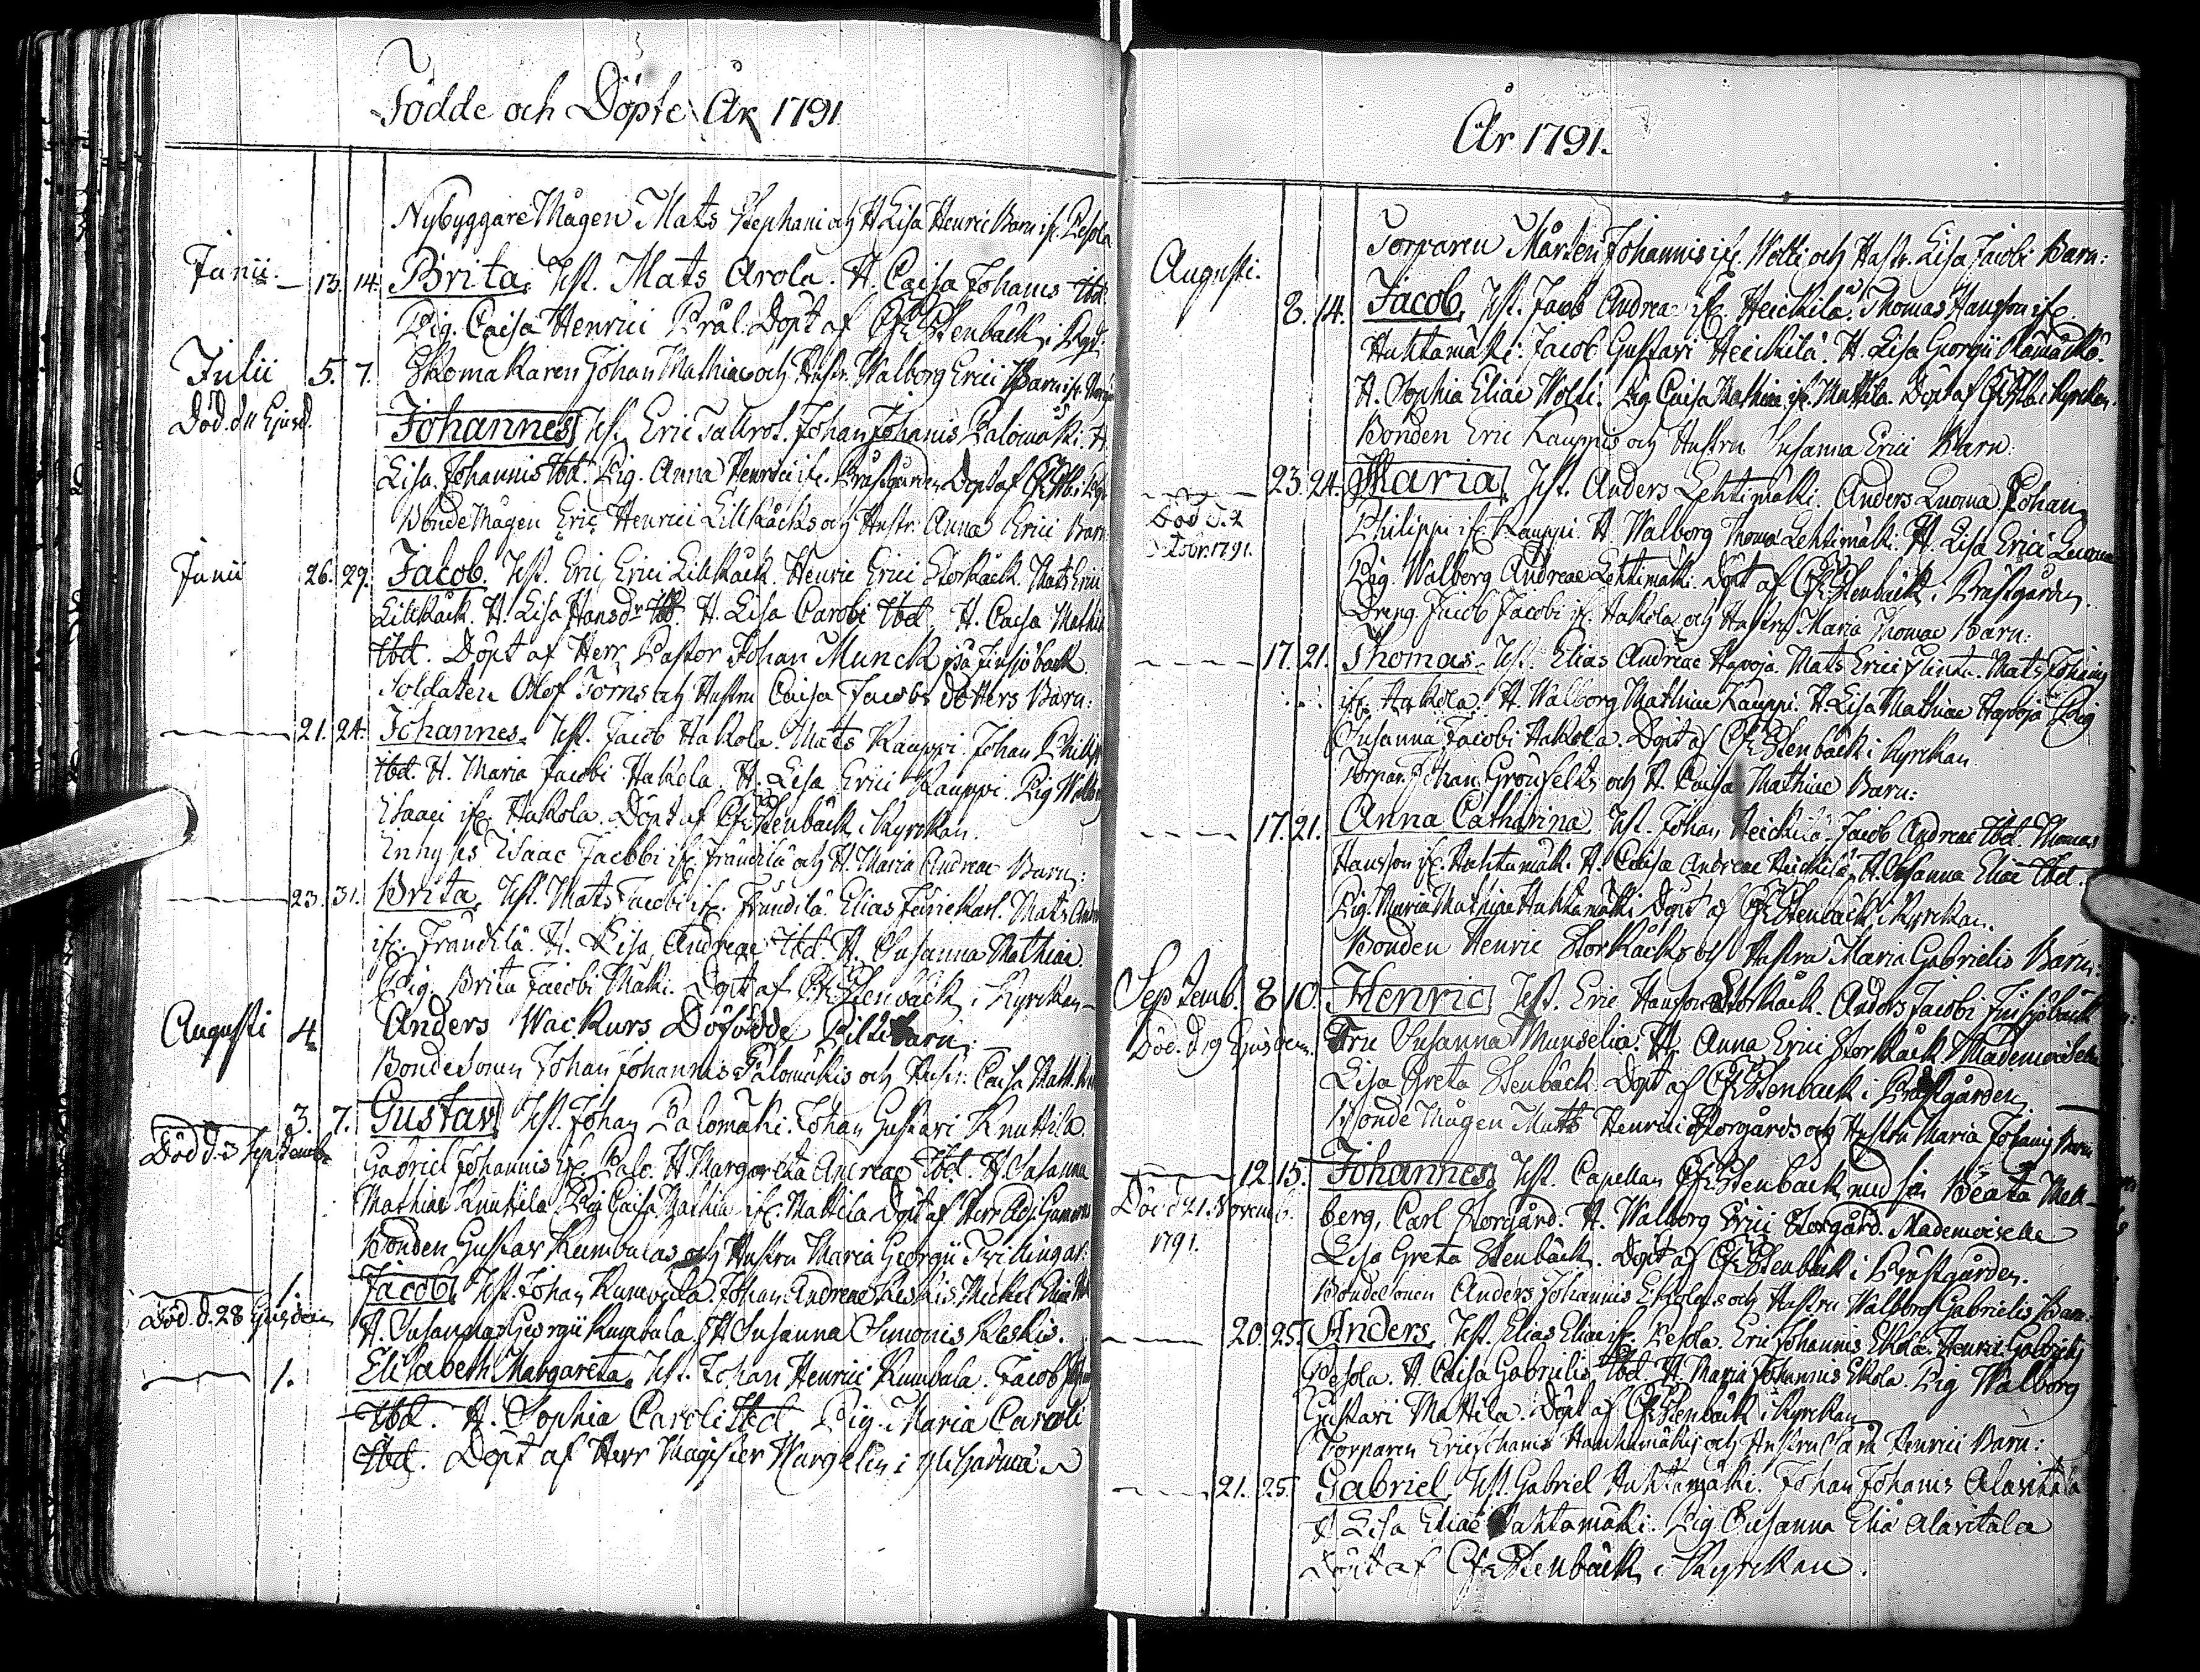 Födde och Döpte År 1791
Nybyggare Mågen Mats Stephani och H. Lisa Henrici Barn if. Pesola
Junii. 13. 14. Brita. Test. Mats Arola. H. Caisa Johanis Ibd.
Pig. Caisa Henrici Döpt af CFStenbäck i
Julii 5. 7. Skomakaren Johan Mathiae och Hustr. Walborg Erici Barn
Död. d. 11 Ejusd.
Johannes Test. Eric Johan Johanis Palomäki. H.
Lisa Johannis Ibd. Pig. Anna Henrici if. Prästgården Döpt af
BondeMågen Eric Henrici Lillkäcks och Hustr. Anna Erici Barn
Junii 26. 29. Jacob. Test. Eric Erici Lillkäck. Henric Erici Storkäck. Mats Erici
Lillkäck. H. Lisa Hansdr Ibd. H. Lisa Caroli Ibd. H. Caisa Mathiæ
Ibd. Döpt af Herr Pastor Johan Munck på Finsjöback
Soldaten Olof Törns och Hustru Caisa Jacobs dotters Barn:
21. 24. Johannes. Test. Jacob Hakola. Mats Kauppi. Johan Philip
Ibd. H. Maria Jacobi Hakola. H. Lisa Erici Kauppi. Pig Walb
Isaaci if. Hakola. Döpt af CFStenbäck i Kyrckan.
Inhyses Isaac Jacobi if. Frändilä och H. Maria Andreae Barn:
23. 31. Brita. Test. Mats Jacobi if. Frändilä. Elias Mats Andr
if. Frändilä. H. Lisa Andreae Ibd. H. Susanna Mathiae.
Pig. Brita Jacobi Mäki. Döpt af CFStenbäck i Kyrckan
Augusti 4. Anders Wackurs Dödfödde Piltebarn.
Bondesonen Johan Johannis Palomäkis och Hustr. Caisa Math.
3. 7. Gustav Test. Johan Palomäki. Johan Gustavi Knuttila.
Död d. 3 Septembr
Gabriel Johannis if. Palo. H. Margareta Andreae Ibd. H. Susanna
Mathiae Knuttila. Pig Caisa Mathiae if. Mattila Döpt af Herr Adj.
Bonden Gustav Kumbulas och Hustru Maria Georgii
1. Jacob Test. Johan Kumbula. Johan Andreae Keskis. Michel
Död. d. 28 Ejusdem
H. Susanna Georgii Kumbula. H. Susanna Simonis Keskis.
1. Elisabeth Margareta. Test. Johan Henrici Kumbula. Jacob
Ibd. H. Sophia Caroli Ibd. Pig. Maria Caroli
Ibd. Döpt af Herr Magister Wargelin i Ylihärmä
År 1791.
Torparen Mårten Johannis if. Wolti och Hustr. Lisa Jacobi Barn:
Augusti.
8. 14. Jacob. Test. Jacob Andreæ if. Heickilä. Thomas Hansson if.
Huhtamäki. Jacob Gustavi Heickilä. H. Lisa Georgii
H. Sophia Eliae Wolti. Pig Caisa Mathiae if. Mattila. Döpt af i Kyrckan.
Bonden Eric Kauppis och Hustru Susanna Erici Barn:
23. 24. Maria. Test. Anders Lehtimäki. Anders Luoma. Johan
Död d. 2
1791.
Philippi if. Kauppi. H. Walborg Thomæ Lehtimäki. H. Lisa Erici Luoma
Pig. Walborg Andreae Lehtimäki. Döpt af CFStenbäck i Prästgården.
Dreng Jacob Jacobi if. Hakola och Hustru Maria Thomae Barn:
17. 21. Thomas. Test. Elias Andreae Haapoja. Mats Erici Mats Johanis
if. Hakola. H. Walborg Mathiae Kauppi. H. Lisa Mathiae Haapoja. Pig
Susanna Jacobi Hakola. Döpt af CFStenbäck i Kyrckan.
Torpar. Johan Grönfelts och H. Caisa Mathiae Barn:
17. 21. Anna Catharina. Test. Johan Heickilä. Jacob Andreae Ibd. Thomas
Hansson if. Huhtamäk. H. Caisa Andreae Heickilä. H. Susanna Eliæ Ibd.
Pig. Maria Mathiae Huhtamäki Döpt af CFStenbäck i Kyrckan.
Bonden Henric Storkäcks och Hustru Maria Gabrielis Barn:
Septemb. 8. 10. Henric. Test. Eric Hansson Storkäck. Anders Jacobi Finsjöback
Död. d. 19 Ejusdem.
Fru Susanna Munselia. H. Anna Erici Storkäck. Mademoiselle
Lisa Greta Stenbäck. Döpt af CFStenbäck i Prästgården
BondeMågen Matts Henrici Storgårds och Hustru Maria Johanis Barn
12. 15. Johannes. Test. Capellan CFStenbäck med sin Beata
Död d 21. Novemb.
1791.
berg, Carl Storgård. H. Walborg Erici Storgård. Mademoiselle
Lisa Greta Stenbäck. Döpt af CFStenbäck i Prästgården.
Bondesonen Anders Johannis Ekolas och Hustru Walborg Gabrielis Barn
20. 25. Anders. Test. Elias Eliae if. Pesola. Eric Johannis Ekola. Henric Gabrielis
Pesola. H. Caisa Gabrielis Ibd. H. Maria Johannis Ekola. Pig Walborg
Gustavi Mattila. Döpt af CFStenbäck i Kyrckan
Torparen Eric Johanis Huhtamäkis och Hustru Sara Henrici Barn:
21. 25. Gabriel. Test. Gabriel Huhtamäki. Johan Johanis Alavitala
H Lisa Eliae Huhtamäki. Pig Susanna Eliæ Alavitala
Döpt af CFStenbäck i Kyrckan.